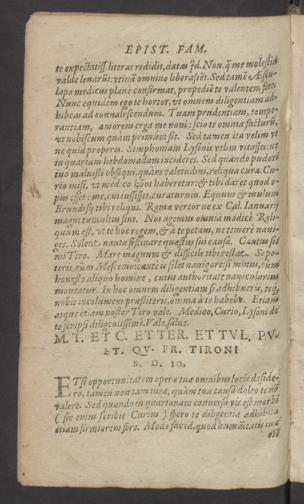 EPIST. FAM.
te expectatiss. literas reddidit, datas
valde lenarūt: vtinā omnino liberasſēt. Sed tamē Æscu-
lapo medicus planè confirmat, propediē te valentem fore.
Nunc equidem ego te hortor, vt omnem diligentiam ad-
hibeas ad conualescendum. Tuam prudentiam, tempe-
rantiam, amorem erga me noui: scio te omnia facturū,
vt nobiscum quàm primùm sit. Sed tamen ita velim vt
ne quid properes. Simphoniam Lysonis velim vitasses: ne
in quartam hebdomadam incideres. Sed quando pudori
tuo maluisti obsequi, quàm valetudini, reliqua cura. Cu-
rio misi, vt medico hōos haberetur: & tibi daret quod o-
pus esset: me, cui iussisset, curaturum. Equum & mulum
Brundisij tibi reliqui. Romæ vereor ne ex Cal. Ianuarij
magni tumultus sint. Nos agemus omnia modicè. Reli-
quum est, vt te hoc rogem, & à te petam, ne temerè naui-
ges. Solent nautæ festinare quæstus sui causâ. Cautus sis
mi Tiro. Mare magnum & difficile tibi restat. Si po-
teris, cum Mescinio: cautè is solet nauigare: si minus, cum
honesto aliquo homine, cuius authoritate nauicularius
moueatur. In hoc omnem diligentiam si adhibueris, teq́;
nobis incolumem præstiteris, omnia à te habebo. Etiam
atque etiam noster Tiro vale. Medico, Curio, Lysoni de
te scripsi diligentissimè. Vale, salue.
M. T. ET C. ET TER. ET TVL. PV-
ET. QV. FR. TIRONI
S. D. 10.
ETsi opportunitatem operæ tuæ omnibus locis deside-
ro, tamen non tam meâ, quàm tuâ causâ doleo te nō
valere. Sed quando in quartanam conuersa vis est morbi
(sic enim scribit Curius) spero te diligentia adhibita
etiam firmiorem fore. Modo fac id, quod humanitatis tuæ
est